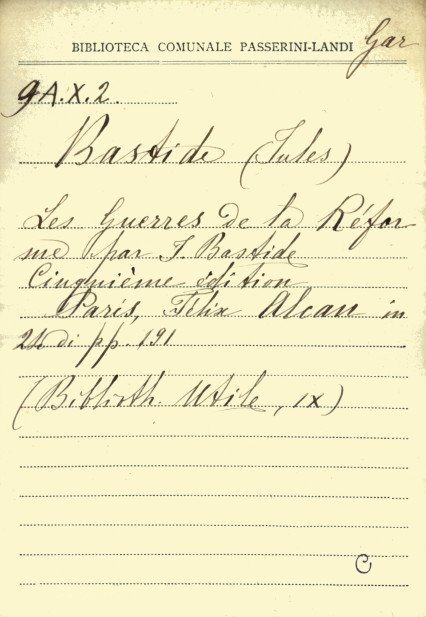 BIBLIOTECA COMUNALE PASSERINI-LANDI Gar
9A.X.2.
Bastide (Jules)
Les Guerres de la Réfor
me par J. Bastide
Cinquième édition
Paris, Félix Alcan in
24 di pp. 191
(Biblioth. Utile, IX)
C